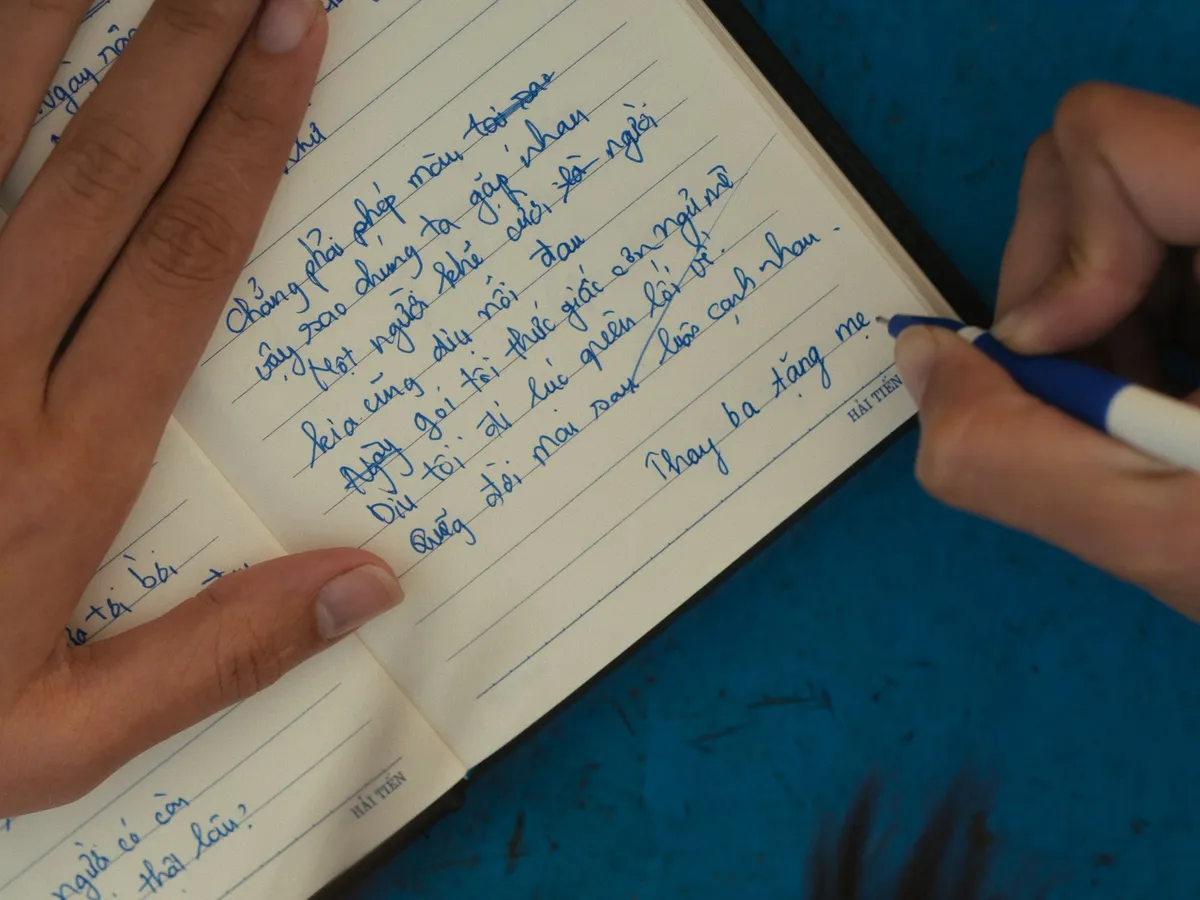 Ngày nào
như
Chẳng phải phép màu tôi sao
vậy sao chúng ta gặp nhau
Một người khẽ cười là người
kia cũng dịu nỗi đau
Ngày gọi tôi thức giấc cơn ngủ mê
Dìu tôi đi lúc quên lối về.
Quãng đời mai sau luôn cạnh nhau.
Thay ba tặng mẹ
HẢI TIẾN
tôi bồi
HẢI TIẾN
người có còn
thật lâu?